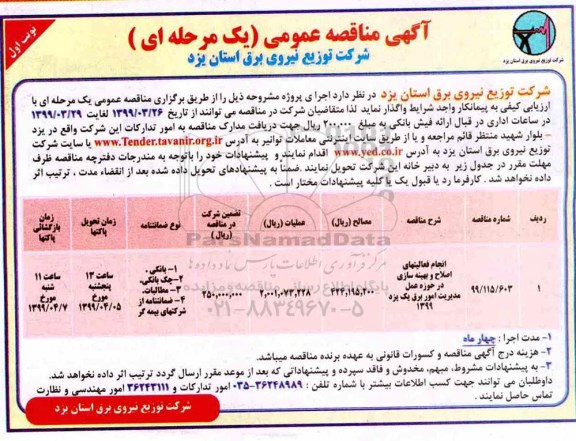 نوبت اول
آگهی مناقصه عمومی (یک مرحله ای )
شرکت توزیع نیروی برق استان یزد
شرکت توزیع نیروی برق استان یزد
شرکت توزیع نیروی برق استان یزد در نظر دارد اجرا ی پروژه مشروحه ذیل را از طریق برگزاری مناقصه عمومی یک مرحله ای با
ارزیابی کیفی به پیمانکار واجد شرایط واگذار نماید لذا متقاضیان شرکت در مناقصه می توانند از تاریخ ۱۳۹۹/۰۳/۲۶ لغایت ۱۳۹۹/۰۳/۲۹
در ساعات اداری در قبال ارائه فیش بانکی به مبلغ ۲۰۰,۰۰۰ ریال جهت دریافت مدارک مناقصه به امور تدارکات این شرکت واقع در یزد
– بلوار شهید منتظر قائم مراجعه و یا از طریق سایت اینترنتی معاملات توانیر به آدرس www.Tender.tavanir.org.ir یا سایت شرکت
توزیع نیروی برق استان یزد به آدرس www.yed.co.ir اقدام نمایند و پیشنهادات خود را باتوجه به مندرجات دفترچه مناقصه ظرف
مهلت مقرر در جدول زیر به دبیر خانه این شرکت تحویل نمایند .ضمناً به پیشنهادهای تحویل داده شده بعد از انقضاء مدت ، ترتیب اثر
داده نخواهد شد . کارفرما رد یا قبول یک یا کلیه پیشنهادات مختار است .
ردیف شماره مناقصه شرح مناقصه مصالح (ریال) عملیات (ریال) تضمین شرکت در مناقصه (ریال) نوع ضمانتنامه زمان تحویل پاکتها زمان بازگشائی پاکتها
۱ ۹۹/۱۱۵/۶۰۳ انجام فعالیتهای اصلاح و بهینه سازی در حوزه عمل مدیریت امور برق یک یزد ۱۳۹۹ ۲,۰۰۱,۰۷۳,۲۳۸ ۲۵۰,۰۰۰,۰۰۰ ۱- بانکی . ۲-چک بانکی. ۳- مطالبات. ۴- ضمانتنامه از شرکتهای بیمه گر ساعت ۱۳ پنجشنبه مورخ ۱۳۹۹/۰۴/۰۵ ساعت ۱۱ شنبه مورخ ۱۳۹۹/۰۴/۷
ParsNamadData
مرکز فرآوری اطلاعات پارس نماد داده ها
پایگاه اطلاع رسانی مناقصه و مزایده
۰۲۱-۸۸۳۴۹۶۷۰-۵
۱- مدت اجرا : چهار ماه
۲- هزینه درج آگهی مناقصه و کسورات قانونی به عهده برنده مناقصه میباشد.
۳- به پیشنهادات مشروط، مبهم، مخدوش و فاقد سپرده و پیشنهاداتی که بعد از موعد مقرر ارسال گردد ترتیب اثر داده نخواهد شد.
داوطلبان می توانند جهت کسب اطلاعات بیشتر با شماره تلفن : ۳۶۲۴۸۹۸۹-۰۳۵ امور تدارکات و ۳۶۲۴۳۱۱۱ امور مهندسی و نظارت
تماس حاصل نمایند .
شرکت توزیع نیروی برق استان یزد